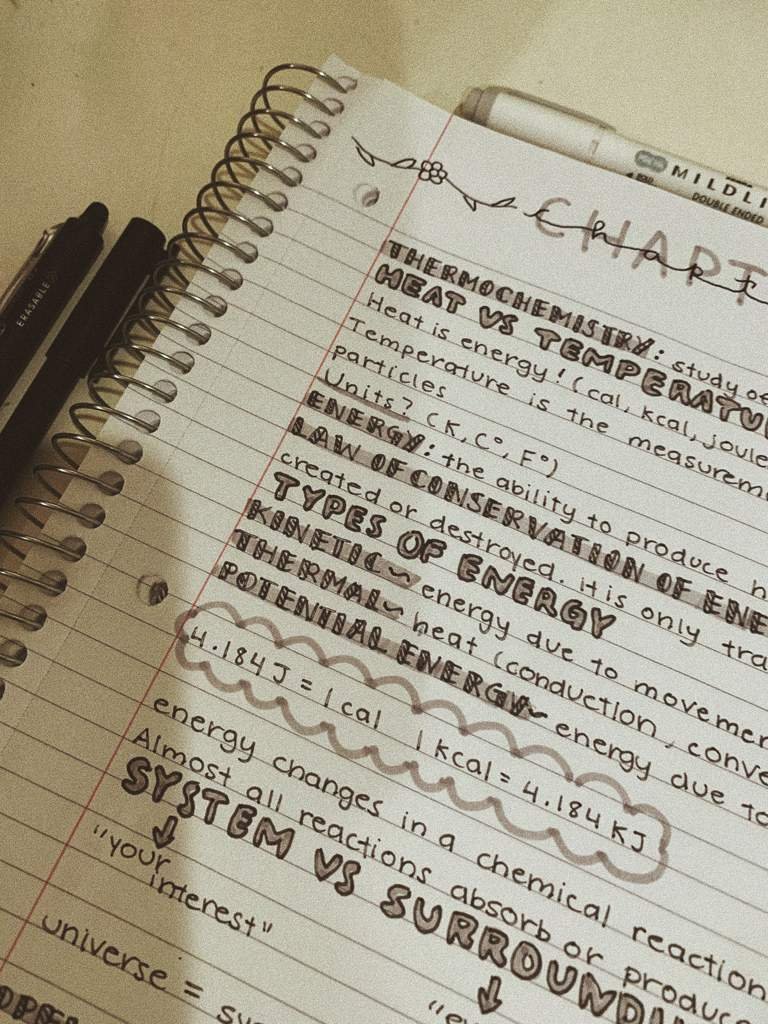 MILDLI
DOUBLE ENDED
ERASABLE
CHAPT
chapt
THERMOCHEMISTRY: study of
HEAT VS TEMPERATU
Heat is energy! (cal, kcal, joule
Temperature is the measurem
particles
Units? (K, C°, F°)
ENERGY: the ability to produce h
LAW OF CONSERVATION OF ENE
created or destroyed. it is only tra
TYPES OF ENERGY
KINETIC~ energy due to movemen
THERMAL~ heat (conduction, conve
POTENTIAL ENERGY~ energy due to
4.184 J = 1 cal 1 kcal = 4.184 KJ
energy changes in a chemical reaction
Almost all reactions absorb or produc
SYSTEM VS SURROUNDI
"your
interest"
"e
universe = sys